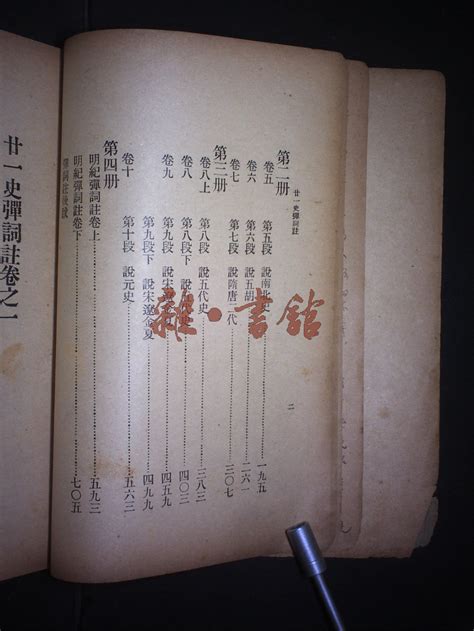 廿一史彈詞註
二
第二册
卷五 第五段 說南北史 一九五
卷六 第六段 說五胡 二六一
卷七 第七段 說隋唐二代 三〇七
第三册
卷八上 第八段 說五代史 三八三
卷八 第八段下 四〇三
卷九 第九段 說宋 四五九
第九段下 說宋遼金夏 四九九
第四册
卷十 第十段 說元史 五六三
明紀彈詞註卷上 五九三
明紀彈詞註卷下 七〇五
廿一史彈詞註卷之一
雜·書館